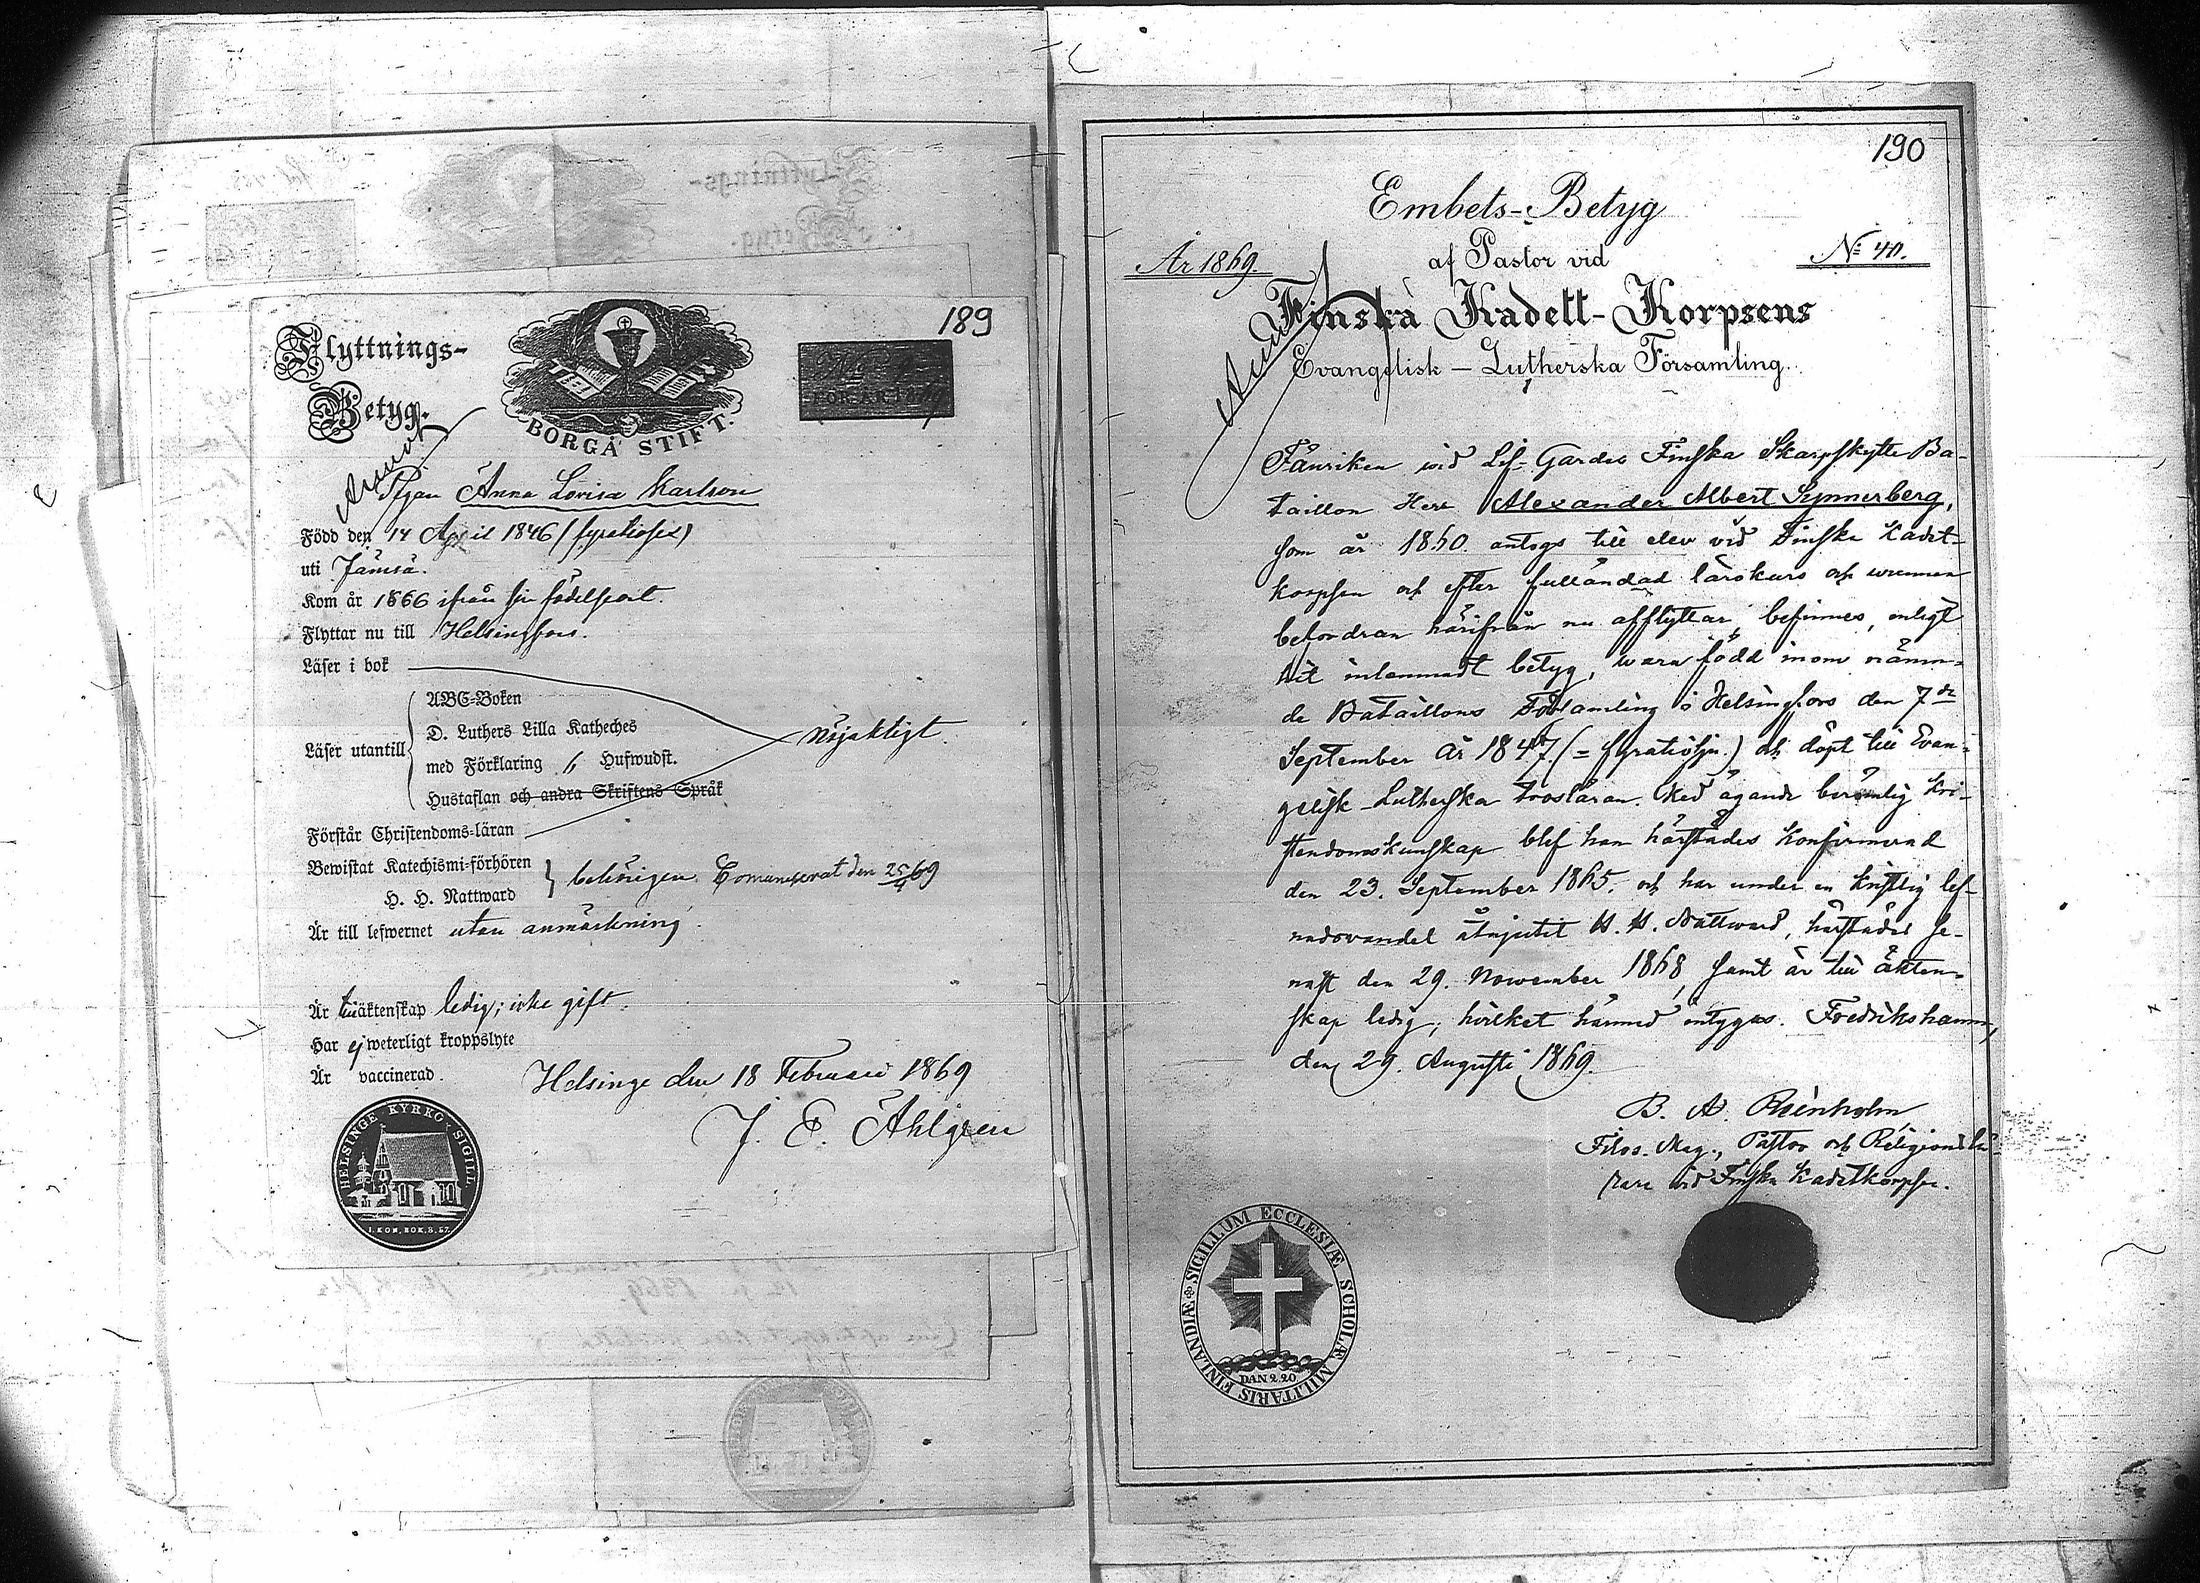 189
Flyttnings-
Betyg.
BORGÅ STIFT.
FÖR ÅR 1869
Pigan Anna Lovisa Karlson
Född den 14 April 1846 (fyratiosex)
uti Jämsä.
Kom år 1866 ifrån sin födelseort.
Flyttar nu till Helsingfors.
Läser i bok
Läser utantill
ABC-Boken
D. Luthers Lilla Katheches
med Förklaring Hufwudst.
Hustaflan och andra Skriftens Språk
nöjaktigt.
Förstår Christendoms-läran
Bewistat Katechismi-förhören
H. H. Nattward
behörigen. Comunicerat den 25/4 69
Är till lefwernet utan anmärkning.
Är till äktenskap ledig; icke gift.
Har ej weterligt kroppslyte
Är vaccinerad.
Helsinge den 18 Februari 1869
J. E. Ahlgren
HELSINGE KYRKO SIGILL
1. KON. BOK. 8. 57.
190
Embets-Betyg
År 1869.
af Pastor vid
No 40.
Finska Kadett-Korpsens
Evangelisk-Lutherska Församling.
Fänriken wid Lif-Gardes Finska Skarpskytte Ba-
taillon Herr Alexander Albert Synnerberg,
som år 1860. antogs till elev vid Finska Kadet-
korpsen och efter fulländad lärokurs och wunnen
befordran härifrån nu afflyttar, befinnes, enligt
hit inlemnadt betyg, wara född inom nämn-
de Bataillons Församling i Helsingfors den 7de
September år 1847. (= fyratiosju.) och döpt till Evan-
gelisk-Lutherska trosläran. Med ägande berömlig Kri-
stendomskunskap blef han härstädes Konfirmerad
den 23. September 1865. och har under en Kristlig lef-
nadsvandel åtnjutit H. H. Nattward, härstädes se-
nast den 29. November 1868, samt är till äkten-
skap ledig; hvilket härmed intygas. Fredrikshamn,
den 29. Augusti 1869.
B. A. Rosenholm
Filos. Mag., Pastor och Religionslä-
rare vid Finska Kadettkorpsen.
SIGILLUM ECCLESIÆ SCHOLÆ MILITARIS FINLANDIÆ
DAN 2.20